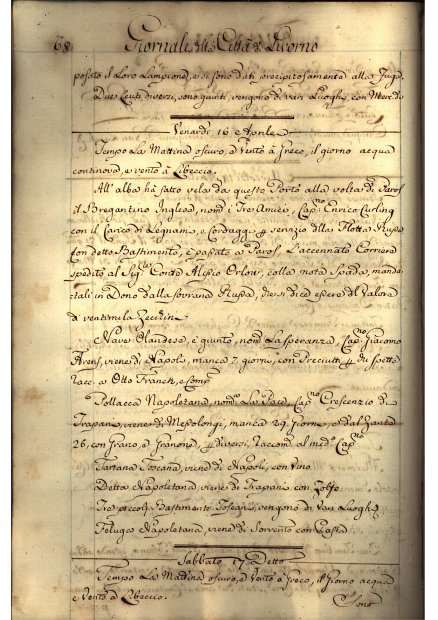 68 Giornale della Città di Livorno
posato il Loro Lampione, e si sono dati precipitosamente alla
Due Leuti diversi, sono giunti, vengono di vari Luoghi, con Merc.
Venardi 16 Aprile
Tempo La Mattina oscuro, e Vento à Greco, il giorno acqua
continova, e vento à Libeccio.
All'alba hà fatto vela da questo Porto alla volta di Paros
il Bregantino Inglese, nom. i Tre Amici, Cap.no Enrico Curling
con il Carico di Legnami, e Cordaggi p servizio della Flotta Russa
con detto Bastimento, è passato a Paros L'accennato Corriere
spedito al Sig.re Conte Alesio Orlow, colla nota Spada, manda-
tali in Dono dalla sovrana Russa, che si dice essere del Valore
di ventimila Zecchini
Nave Olandese, è giunto, nom. La Speranza, Cap.no Giacomo
Arens, viene di Napoli, manca 7 giorni, con Presciutti p di spetto
Racc. a Otto Franck, e Comp.
Pollacca Napoletana, nom. La Pace, Cap.no Crescenzio di
Trapani, viene di Messolongi, manca 29 Giorni, e dal Zante
26, con Grano, e Granone, p diversi, Raccom. al med.o Cap.no
Tartana Toscana viene di Napoli, con Vino
Detta Napoletana, viene di Trapani con Zolfo
Tre piccoli Bastimenti Toscani, vengono di Vari Luoghi
Feluga Napoletana, viene di Sorrento con Pasta
Sabbato 17 Detto
Tempo La Mattina oscuro, e Vento à Greco, il Giorno acqua
e Vento à Libeccio.
Sono